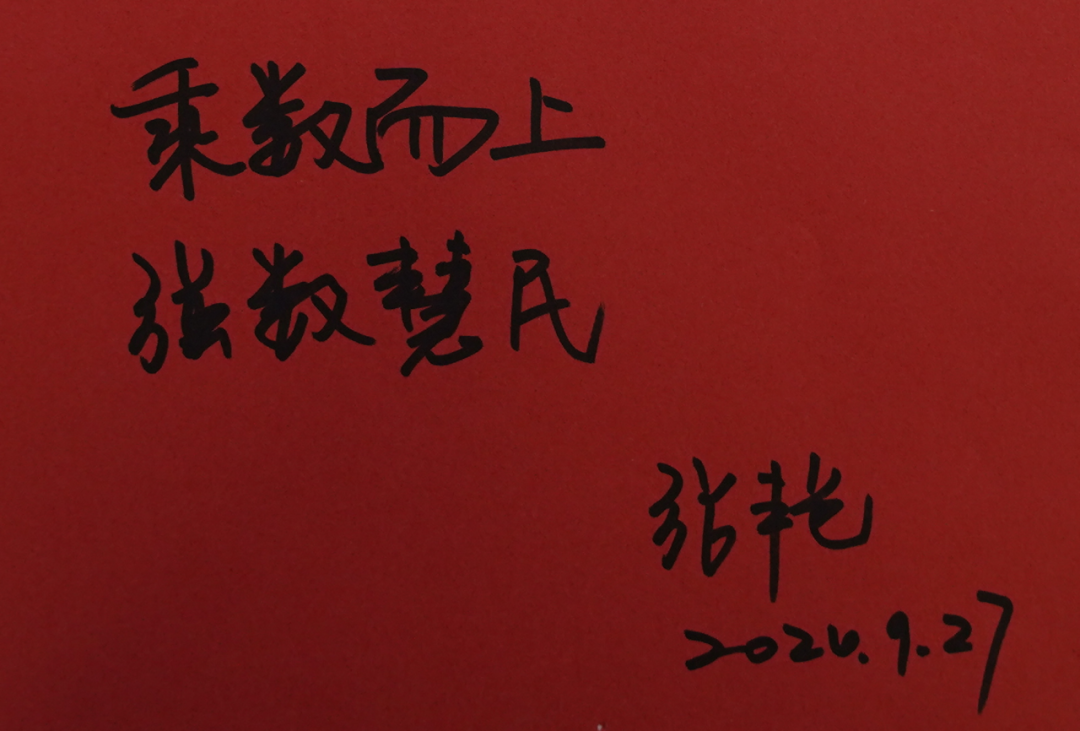 乘数而上
强数慧民
张艳
2024.9.27